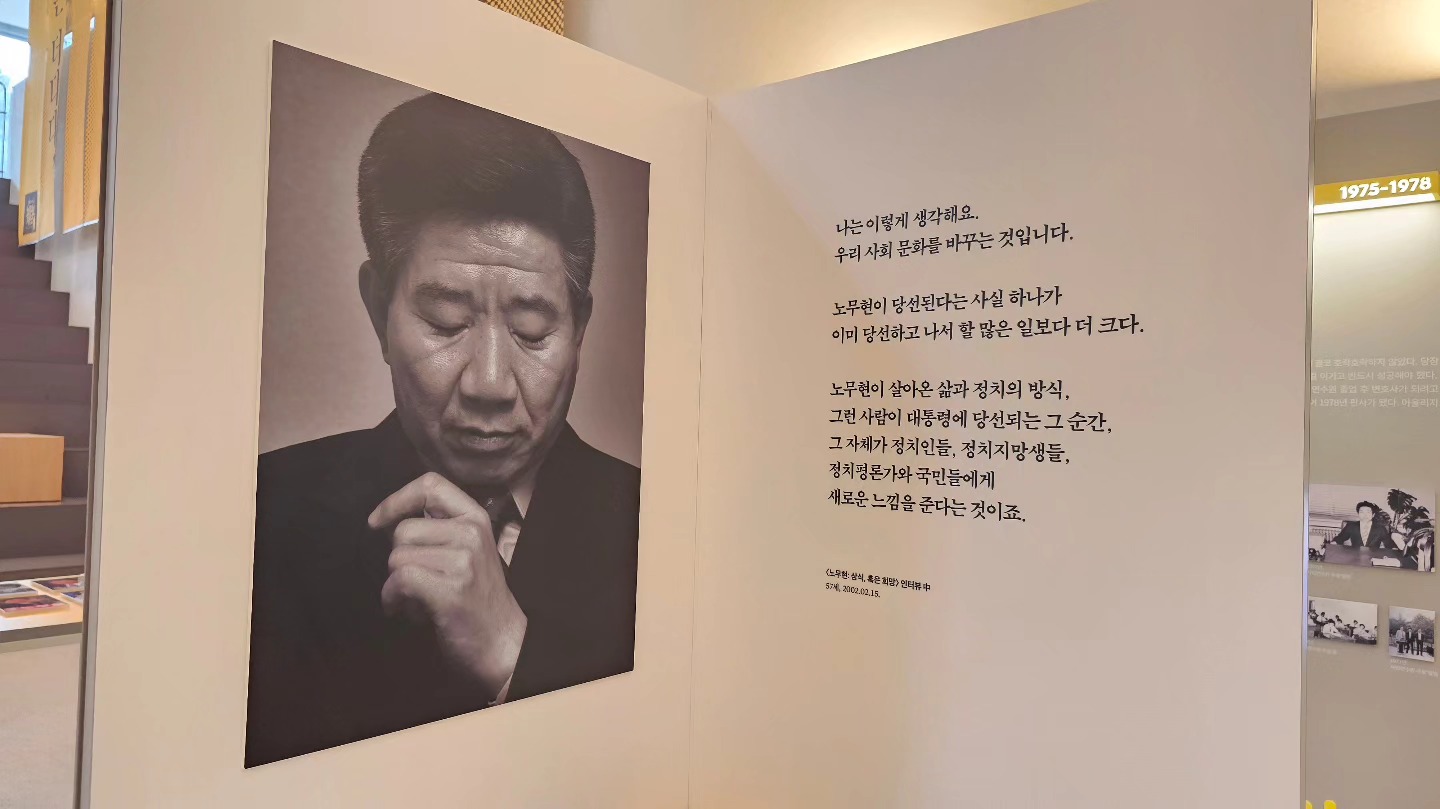 나는 이렇게 생각해요.
우리 사회 문화를 바꾸는 것입니다.
노무현이 당선된다는 사실 하나가
이미 당선하고 나서 할 많은 일보다 더 크다.
노무현이 살아온 삶과 정치의 방식,
그런 사람이 대통령에 당선되는 그 순간,
그 자체가 정치인들, 정치지망생들,
정치평론가와 국민들에게
새로운 느낌을 준다는 것이죠.
《노무현: 상식, 혹은 희망》 인터뷰 中
57세, 2002.02.15.
1975-1978